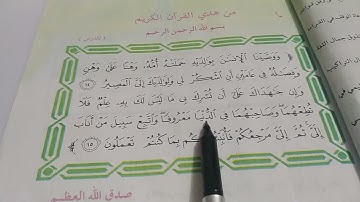 من هدي القرآن الكريم
بسم الله الرحمن الرحيم
﴿ وَوَصَّيْنَا ٱلْإِنسَٰنَ بِوَٰلِدَيْهِ حَمَلَتْهُ أُمُّهُۥ وَهْنًا عَلَىٰ وَهْنٍ
وَفِصَٰلُهُۥ فِى عَامَيْنِ أَنِ ٱشْكُرْ لِى وَلِوَٰلِدَيْكَ إِلَىَّ ٱلْمَصِيرُ ﴿١٤﴾
وَإِن جَٰهَدَاكَ عَلَىٰٓ أَن تُشْرِكَ بِى مَا لَيْسَ لَكَ بِهِۦ عِلْمٌ فَلَا
تُطِعْهُمَا وَصَاحِبْهُمَا فِى ٱلدُّنْيَا مَعْرُوفًا وَٱتَّبِعْ سَبِيلَ مَنْ أَنَابَ
إِلَىَّ ثُمَّ إِلَىَّ مَرْجِعُكُمْ بِمَا كُنتُمْ تَعْمَلُونَ ﴿١٥﴾
صدق الله العظيم